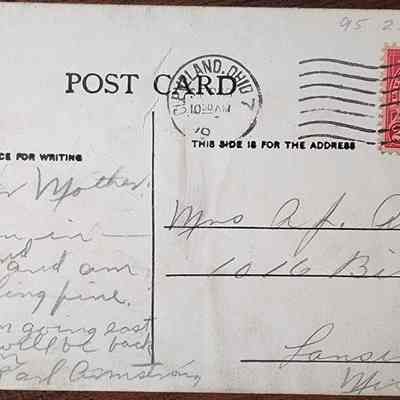 95
POST CARD
CLEVELAND, OHIO 7
10 30 AM
CE FOR WRITING
THIS SIDE IS FOR THE ADDRESS
Mother.
in
and am
ing fine.
going east
will be back
Earl Armstrong
Mrs A. J. A
1016 Bi
Lansi
Mi